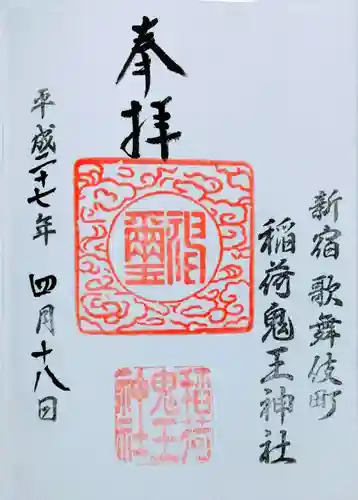 奉拝
新宿歌舞伎町
稲荷鬼王神社
平成二十七年 四月十八日
稲荷
鬼王
神社